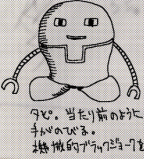 タピ。当たり前のように
手がのびる。
機械的ブラックジョークを